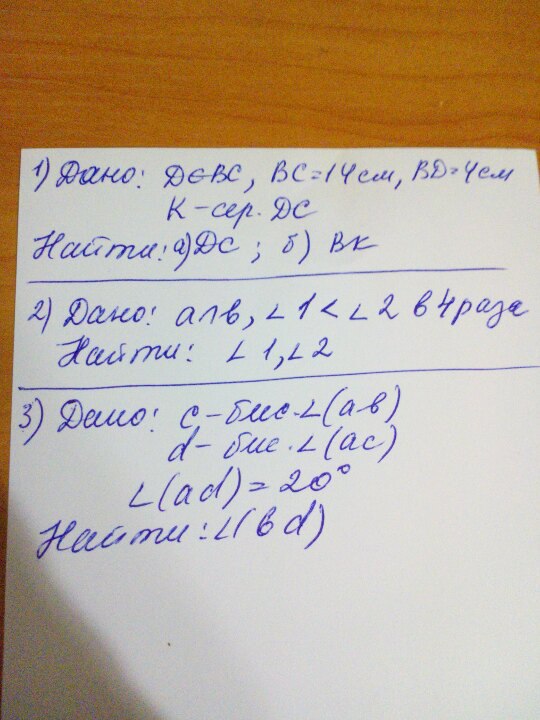 1) Дано: D∈BC, BC=14см, BD=4см
K-сер. DC
Найти: а) DC ; б) BK
2) Дано: a∩b, ∠1<∠2 в 4 раза
Найти: ∠1, ∠2
3) Дано: c-бис. ∠(ab)
d-бис. ∠(ac)
∠(ad)=20°
Найти: ∠(bd)